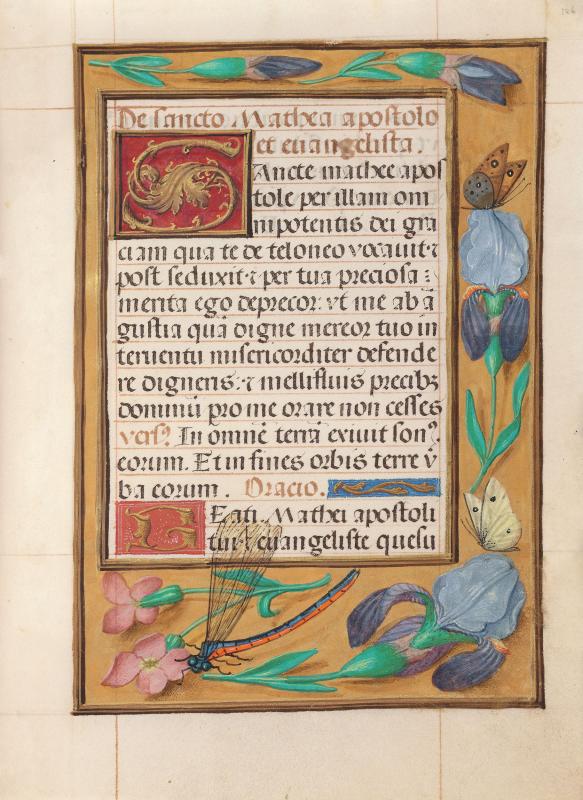 126
De sancto Matheo apostolo
et euangelista.
Sancte mathee apos
tole per illam om
nipotentis dei gra
ciam qua te de teloneo vocauit ⁊
post se duxit ⁊ per tua preciosa :
merita ego deprecor vt me ab ā
gustia quā digne mereor tuo in
teruentu misericorditer defende
re digneris. ⁊ mellifluis precibꝫ
dominū pro me orare non cesses
versꝰ In omnē terrā exiuit sonꝰ
eorum. Et in fines orbis terre v̄
ba eorum. Oracio.
Beati Mathei apostoli
tui ⁊ euangeliste quesu